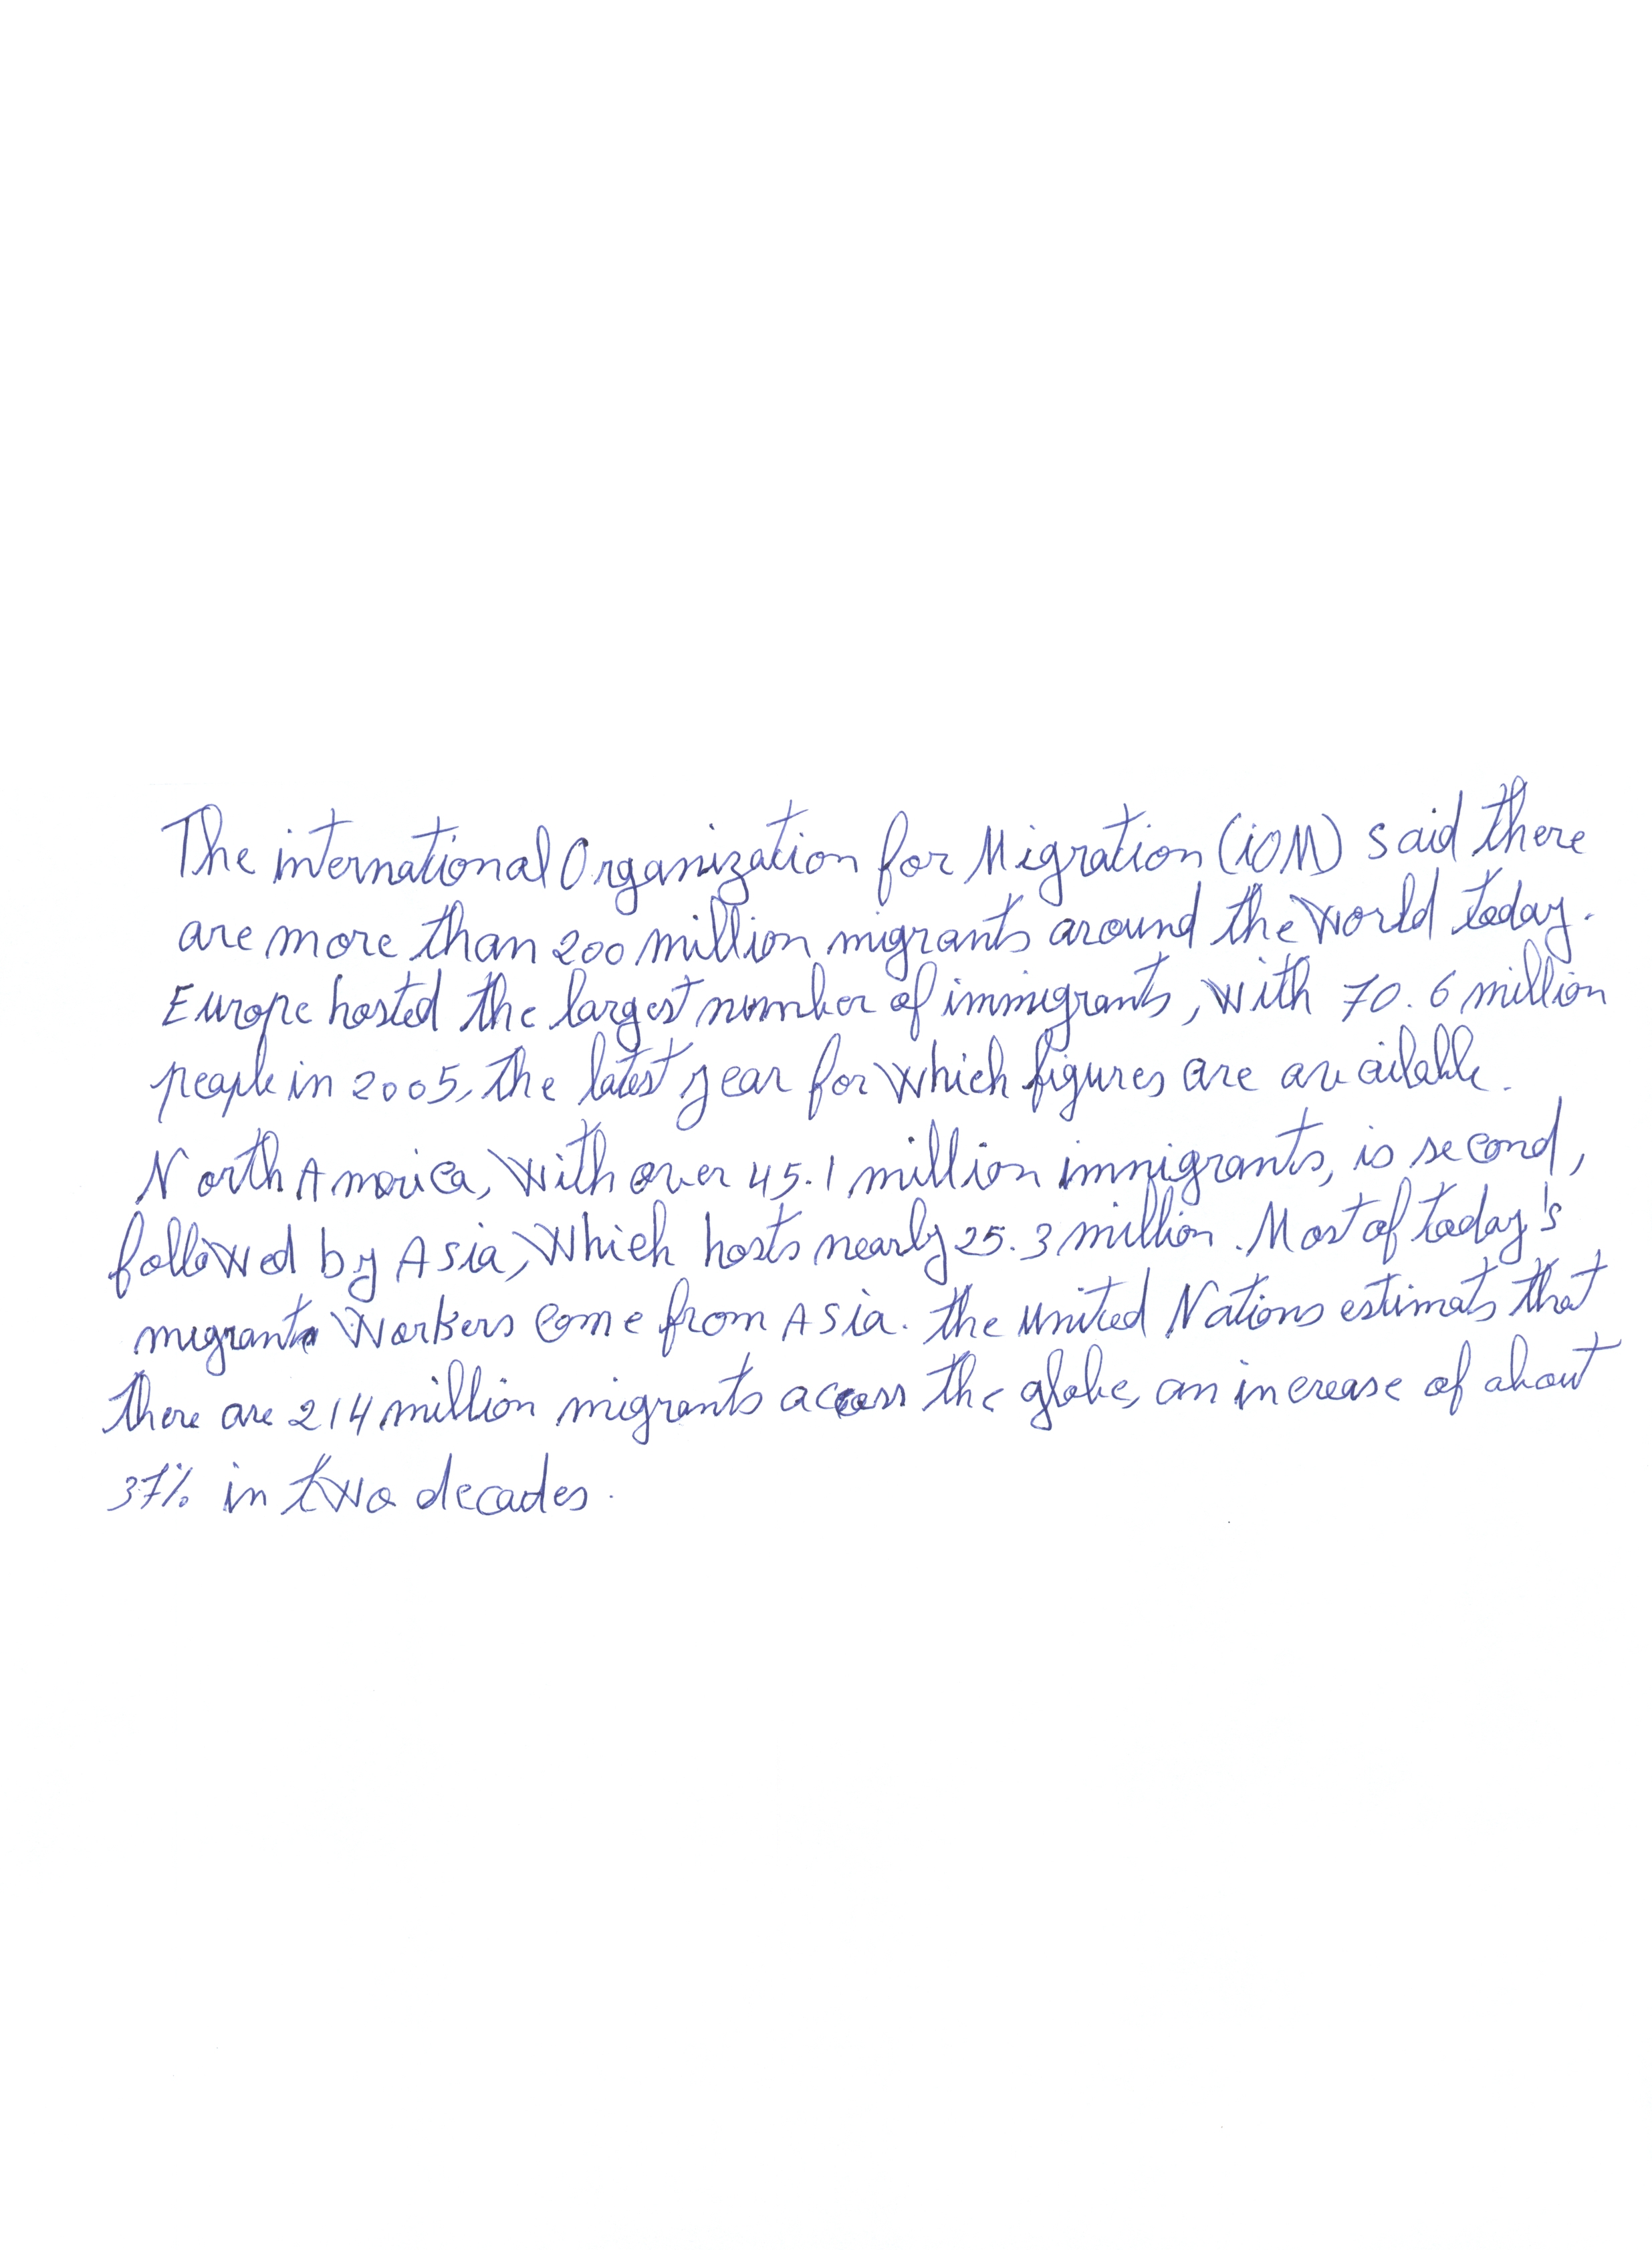 The international Organization for Migration (iOM) said there
are more than 200 million migrants around the World today.
Europe hosted the largest number of immigrants, with 70.6 million
people in 2005, the latest year for which figures are available.
North America, with over 45.1 million immigrants, is second,
followed by Asia, Which hosts nearly 25.3 million. Most of today's
migrant Workers come from Asia. the united Nations estimats that
there are 214 million migrants across the globe, an increase of about
37% in two decades.